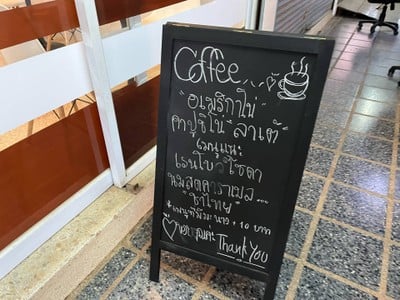 Coffee
"อเมริกาโน่"
คาปูชิโน่ "ลาเต้"
เมนูแนะ
เรนโบว์โซดา
นมสดคาราเมล
"ชาไทย"
* เมนูที่มีมะนาว + 10 บาท
ขอบคุณค่ะ Thank You